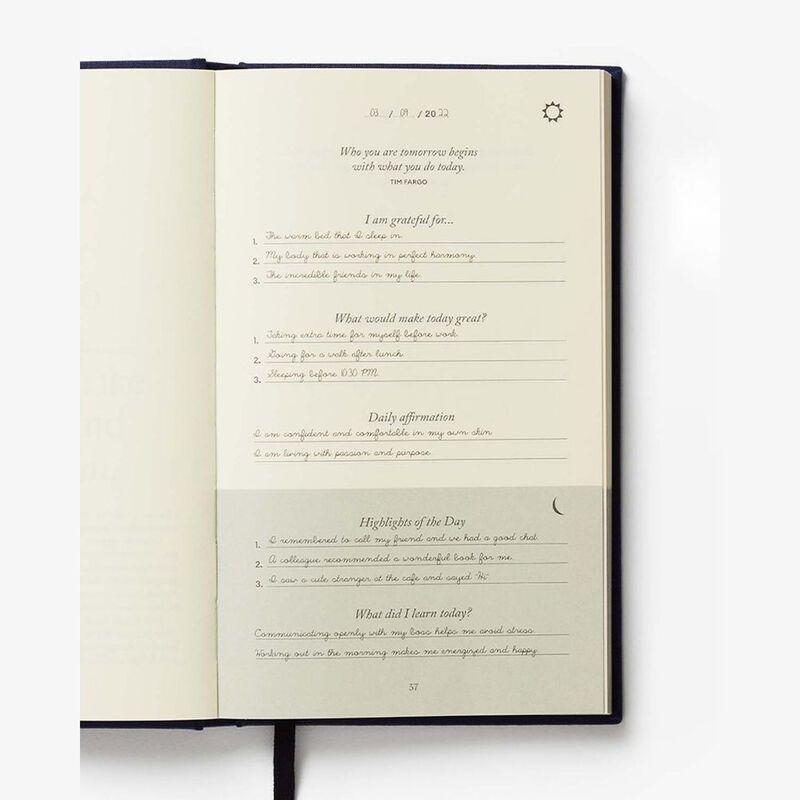 03 / 09 / 2022
Who you are tomorrow begins
with what you do today.
TIM FARGO
I am grateful for...
1. The warm bed that I sleep in.
2. My body that is working in perfect harmony.
3. The incredible friends in my life.
What would make today great?
1. Taking extra time for myself before work.
2. Going for a walk after lunch.
3. Sleeping before 10:30 PM.
Daily affirmation
I am confident and comfortable in my own skin.
I am living with passion and purpose.
Highlights of the Day
1. I remembered to call my friend and we had a good chat.
2. A colleague recommended a wonderful book for me.
3. I saw a cute stranger at the cafe and sayed "Hi".
What did I learn today?
Communicating openly with my boss helps me avoid stress.
Working out in the morning makes me energized and happy.
37